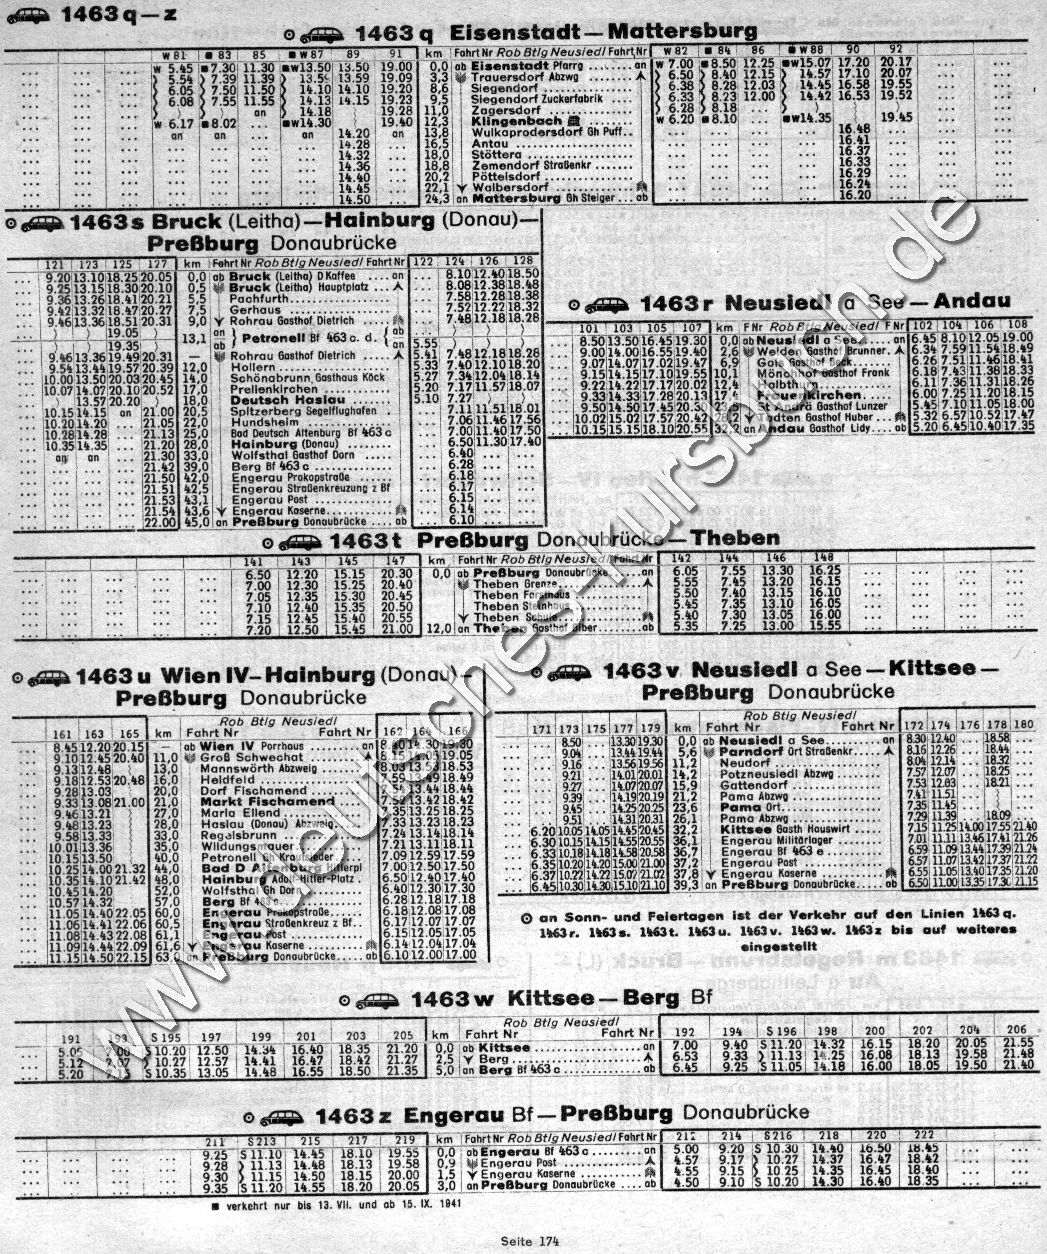 1463 q–z
1463 q Eisenstadt–Mattersburg
W 81 ■ 83 85 ■ W 87 89 91 km Fahrt Nr Rob Btlg Neusiedl Fahrt Nr W 82 ■ 84 86 ■ W 88 90 92
W 5.45 ■ 7.30 11.30 ■W13.50 13.50 19.00 0,0 ab Eisenstadt Pfarrg an W 7.00 ■ 8.50 12.25 ■W15.07 17.20 20.17
5.54 7.39 11.39 13.59 13.59 19.09 3,3 Trauersdorf Abzwg 6.50 8.40 12.15 14.57 17.10 20.07
6.05 7.50 11.50 14.10 14.10 19.20 8,6 Siegendorf 6.38 8.28 12.03 14.45 16.58 19.55
6.08 7.55 11.55 14.13 14.15 19.23 9,5 Siegendorf Zuckerfabrik 6.33 8.23 12.00 14.42 16.53 19.52
an 14.18 19.28 11,0 Zagersdorf 6.28 8.18
W 6.17 ■ 8.02 ■W14.30 19.40 12,3 Klingenbach W 6.20 ■ 8.10 ■W14.35 19.45
an an an 14.20 an 13,8 Wulkaprodersdorf Gh Puff 16.48
14.28 16,5 Antau 16.41
14.32 18,0 Stöttera 16.37
14.36 18,8 Zemendorf Straßenkr 16.33
14.40 20,2 Pöttelsdorf 16.29
14.45 22,1 Walbersdorf 16.24
14.50 24,3 an Mattersburg Gh Steiger ab 16.20
1463 s Bruck (Leitha)–Hainburg (Donau)–
Preßburg Donaubrücke
121 123 125 127 km Fahrt Nr Rob Btlg Neusiedl Fahrt Nr 122 124 126 128
9.20 13.10 18.25 20.05 0,0 ab Bruck (Leitha) D Kaffee an 8.10 12.40 18.50
9.25 13.15 18.30 20.10 0,5 Bruck (Leitha) Hauptplatz 8.08 12.38 18.48
9.36 13.26 18.41 20.21 5,5 Pachfurth 7.58 12.28 18.38
9.42 13.32 18.47 20.27 7,5 Gerhaus 7.52 12.22 18.32
9.46 13.36 18.51 20.31 9,0 Rohrau Gasthof Dietrich 7.48 12.18 18.28
19.05 13,1 an Petronell Bf 463 c. d. ab
19.35 ab an 5.55
9.46 13.36 19.49 20.31 — Rohrau Gasthof Dietrich 5.41 7.48 12.18 18.28
9.54 13.44 19.57 20.39 12,0 Hollern 5.33 7.40 12.10 18.20
10.00 13.50 20.03 20.45 14,0 Schönabrunn Gasthaus Köck 5.27 7.34 12.04 18.14
10.07 14.07 20.10 20.52 17,0 Prellenkirchen 5.20 7.17 11.57 18.07
13.57 20.20 18,0 Deutsch Haslau 5.10 7.27
10.15 14.15 an 21.00 20,5 Spitzerberg Segelflughafen 7.11 11.51 18.01
10.20 14.20 21.05 22,0 Hundsheim 7.06 11.46 17.56
10.28 14.28 21.13 25,0 Bad Deutsch Altenburg Bf 463 c 7.00 11.40 17.50
10.35 14.35 21.20 28,0 Hainburg (Donau) 6.50 11.30 17.40
an an 21.30 33,0 Wolfsthal Gasthof Dorn 6.40
21.42 39,0 Berg Bf 463 c 6.28
21.50 42,0 Engerau Prokopstraße 6.18
21.51 42,5 Engerau Straßenkreuzung z Bf 6.17
21.53 43,1 Engerau Post 6.15
21.54 43,6 Engerau Kaserne 6.14
22.00 45,0 an Preßburg Donaubrücke ab 6.10
1463 r Neusiedl a See–Andau
101 103 105 107 km F Nr Rob Btlg Neusiedl F Nr 102 104 106 108
8.50 13.50 16.45 19.30 0,0 ab Neusiedl a See an 6.45 8.10 12.05 19.00
9.00 14.00 16.55 19.40 2,6 Weiden Gasthof Brunner 6.34 7.59 11.54 18.49
9.07 14.07 17.02 19.47 6,9 Gols Gasthof 6.26 7.51 11.46 18.41
9.15 14.15 17.10 19.55 10,1 Mönchhof Gasthof Frank 6.18 7.43 11.38 18.33
9.22 14.22 17.17 20.02 12,4 Halbthurn 6.11 7.36 11.31 18.26
9.33 14.33 17.28 20.13 Frauenkirchen 6.00 7.25 11.20 18.15
9.50 14.50 17.45 20.30 St Andrä Gasthof Lunzer 5.45 7.10 11.05 18.00
10.02 15.02 17.57 20.42 28,2 Tadten Gasthof Huber 5.32 6.57 10.52 17.47
10.15 15.15 18.10 20.55 32,2 an Andau Gasthof Lidy ab 5.20 6.45 10.40 17.35
1463 t Preßburg Donaubrücke–Theben
141 143 145 147 km Fahrt Nr Rob Btlg Neusiedl Fahrt Nr 142 144 146 148
6.50 12.20 15.15 20.30 0,0 ab Preßburg Donaubrücke an 6.05 7.55 13.30 16.25
7.00 12.30 15.25 20.40 Theben Grenze 5.55 7.45 13.20 16.15
7.05 12.35 15.30 20.45 Theben Forsthaus 5.50 7.40 13.15 16.10
7.10 12.40 15.35 20.50 Theben Steinhaus 5.45 7.35 13.10 16.05
7.15 12.45 15.40 20.55 Theben Schule 5.40 7.30 13.05 16.00
7.20 12.50 15.45 21.00 12,0 an Theben Gasthof ab 5.35 7.25 13.00 15.55
1463 u Wien IV–Hainburg (Donau)–
Preßburg Donaubrücke
Rob Btlg Neusiedl
161 163 165 km Fahrt Nr Fahrt Nr 162 164 166
8.45 12.20 20.15 — ab Wien IV Porrhaus an 19.30
9.10 12.45 20.40 11,0 Groß Schwechat 19.05
9.13 12.48 13,0 Mannswörth Abzweig 8.03 13.53 18.53
9.18 12.53 20.48 16,0 Heldfeld 7.59 13.49 18.49
9.28 13.03 20,0 Dorf Fischamend 7.54 13.44 18.44
9.33 13.08 21.00 21,0 Markt Fischamend 7.52 13.42 18.42
9.46 13.21 27,0 Maria Ellend 7.35 13.25 18.25
9.48 13.23 28,0 Haslau (Donau) Abzweig 7.33 13.23 18.23
9.58 13.33 33,0 Regelsbrunn 7.24 13.14 18.14
10.01 13.36 35,0 Wildungsmauer 7.21 13.11 18.11
10.15 13.50 40,0 Petronell Gh 7.09 12.59 17.59
10.25 14.00 21.32 44,0 Bad D Altenburg 7.00 12.50 17.50
10.35 14.10 21.42 48,0 Hainburg Adolf-Hitler-Platz 6.50 12.40 17.40
10.45 14.20 52,0 Wolfsthal Gh Dorn 6.40 12.30 17.30
10.57 14.32 57,0 Berg Bf 463 c 6.28 12.18 17.18
11.05 14.40 22.05 60,0 Engerau Prokopstraße 6.18 12.08 17.08
11.06 14.41 22.06 60,5 Engerau Straßenkreuz z Bf 6.17 12.07 17.07
11.08 14.43 22.08 61,1 Engerau Post 6.15 12.05 17.05
11.09 14.44 22.09 61,6 Engerau Kaserne 6.14 12.04 17.04
11.15 14.50 22.15 63,0 an Preßburg Donaubrücke ab 6.10 12.00 17.00
1463 v Neusiedl a See–Kittsee–
Preßburg Donaubrücke
Rob Btlg Neusiedl
171 173 175 177 179 km Fahrt Nr Fahrt Nr 172 174 176 178 180
8.50 13.30 19.30 0,0 ab Neusiedl a See an 8.30 12.40 18.58
9.04 13.44 19.44 5,6 Parndorf Ort Straßenkr 8.16 12.26 18.44
9.16 13.56 19.56 11,2 Neudorf 8.04 12.14 18.32
9.21 14.01 20.01 14,2 Potzneusiedl Abzwg 7.57 12.07 18.25
9.27 14.07 20.07 15,9 Gattendorf 7.53 12.03 18.21
9.39 14.19 20.19 21,2 Pama Abzwg 7.41 11.51
9.45 14.25 20.25 23,6 Pama Ort 7.35 11.45
9.51 14.31 20.31 26,1 Pama Abzwg 7.29 11.39 18.09
6.20 10.05 14.05 14.45 20.45 32,2 Kittsee Gasth Hauswirt 7.15 11.25 14.00 17.55 21.40
6.30 10.15 14.15 14.55 20.55 36,1 Engerau Militärlager 7.01 11.11 13.46 17.41 21.26
6.33 10.18 14.18 14.58 20.58 36,7 Engerau Bf 463 e 6.59 11.09 13.44 17.39 21.24
6.35 10.20 14.20 15.00 21.00 37,2 Engerau Post 6.57 11.07 13.42 17.37 21.22
6.37 10.22 14.22 15.02 21.02 37,8 Engerau Kaserne 6.55 11.05 13.40 17.35 21.20
6.45 10.30 14.30 15.10 21.10 39,3 an Preßburg Donaubrücke ab 6.50 11.00 13.35 17.30 21.15
an Sonn- und Feiertagen ist der Verkehr auf den Linien 1463 q.
1463 r. 1463 s. 1463 t. 1463 u. 1463 v. 1463 w. 1463 z bis auf weiteres
eingestellt
1463 w Kittsee–Berg Bf
Rob Btlg Neusiedl
191 193 S 195 197 199 201 203 205 km Fahrt Nr Fahrt Nr 192 194 S 196 198 200 202 204 206
5.05 7.00 S 10.20 12.50 14.34 16.40 18.35 21.20 0,0 ab Kittsee an 7.00 9.40 S 11.20 14.32 16.15 18.20 20.05 21.55
5.12 10.27 12.57 14.41 16.47 18.42 21.27 2,5 Berg 6.53 9.33 11.13 14.25 16.08 18.13 19.58 21.48
5.20 S 10.35 13.05 14.48 16.55 18.50 21.35 5,0 an Berg Bf 463 c ab 6.45 9.25 S 11.05 14.18 16.00 18.05 19.50 21.40
1463 z Engerau Bf–Preßburg Donaubrücke
211 S 213 215 217 219 km Fahrt Nr Rob Btlg Neusiedl Fahrt Nr 212 214 S 216 218 220 222
9.25 S 11.10 14.45 18.10 19.55 0,0 ab Engerau Bf 463 c an 5.00 9.20 S 10.30 14.40 16.50 18.45
9.28 11.13 14.48 18.13 19.58 0,9 Engerau Post 4.57 9.17 10.27 14.37 16.47 18.42
9.30 11.15 14.50 18.15 20.00 1,5 Engerau Kaserne 4.55 9.15 10.25 14.35 16.45 18.40
9.35 S 11.20 14.55 18.20 20.05 3,0 an Preßburg Donaubrücke ab 4.50 9.10 S 10.20 14.30 16.40 18.35
■ verkehrt nur bis 13. VII. und ab 15. IX. 1941
Seite 174
www.deutsches-kursbuch.de